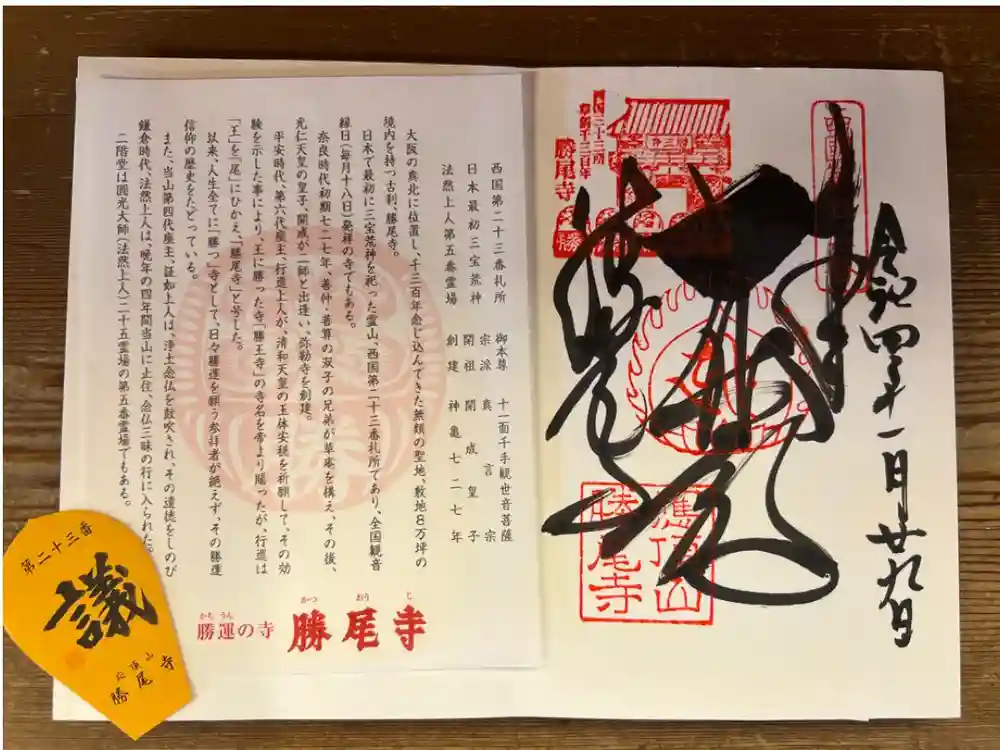 令和四年一月廿九日
西国三十三所
草創千三百年
勝尾寺
勝
應頂山
勝尾寺
西国第二十三番札所　御本尊　十一面千手観世音菩薩
日本最初三宝荒神　宗派　真言宗
開祖　開成皇子
法然上人第五番霊場　創建　神亀七二七年
大阪の真北に位置し、千三百年念じ込んできた無類の聖地、敷地8万坪の
境内を持つ古刹、勝尾寺。
日本で最初に三宝荒神を祀った霊山、西国第二十三番札所であり、全国観音
縁日(毎月十八日)発祥の寺でもある。
奈良時代初期七二七年、善仲・善算の双子の兄弟が草庵を構え、その後、
光仁天皇の皇子、開成が二師と出逢い、弥勒寺を創建。
平安時代、第六代座主、行巡上人が、清和天皇の玉体安穏を祈願して、その効
験を示した事により、王に勝った寺「勝王寺」の寺名を帝より賜ったが、行巡は
「王」を「尾」にひかえ、「勝尾寺」と号した。
以来、人生全てに「勝つ」寺として、日々勝運を願う参拝者が絶えず、その勝運
信仰の歴史をたどっている。
また、当山第四代座主、証如上人は、浄土念仏を鼓吹され、その遺徳をしのび
鎌倉時代、法然上人は、晩年の四年間当山に止住、念仏三昧の行に入られた。
二階堂は圓光大師(法然上人)二十五霊場の第五番霊場でもある。
かちうん
勝運の寺
かつおうじ
勝尾寺
第二十三番
議
応頂山
勝尾寺